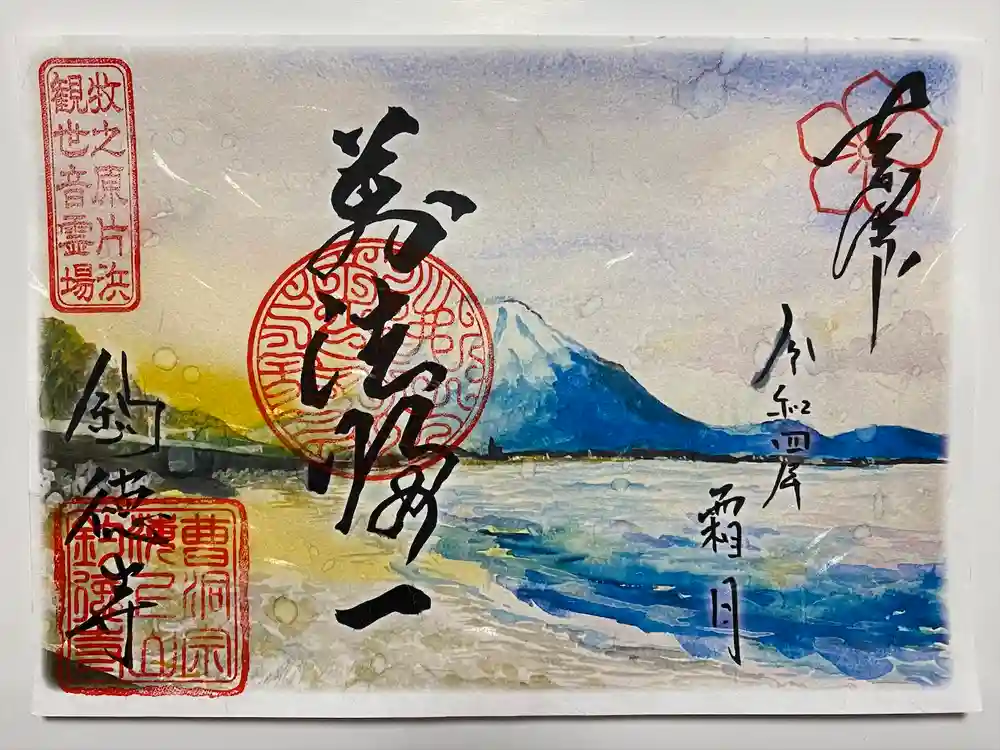 奉拝
令和四年
霜月
萬法歸一
牧之原片浜
観世音霊場
釣徳寺
曹洞宗
釣徳寺